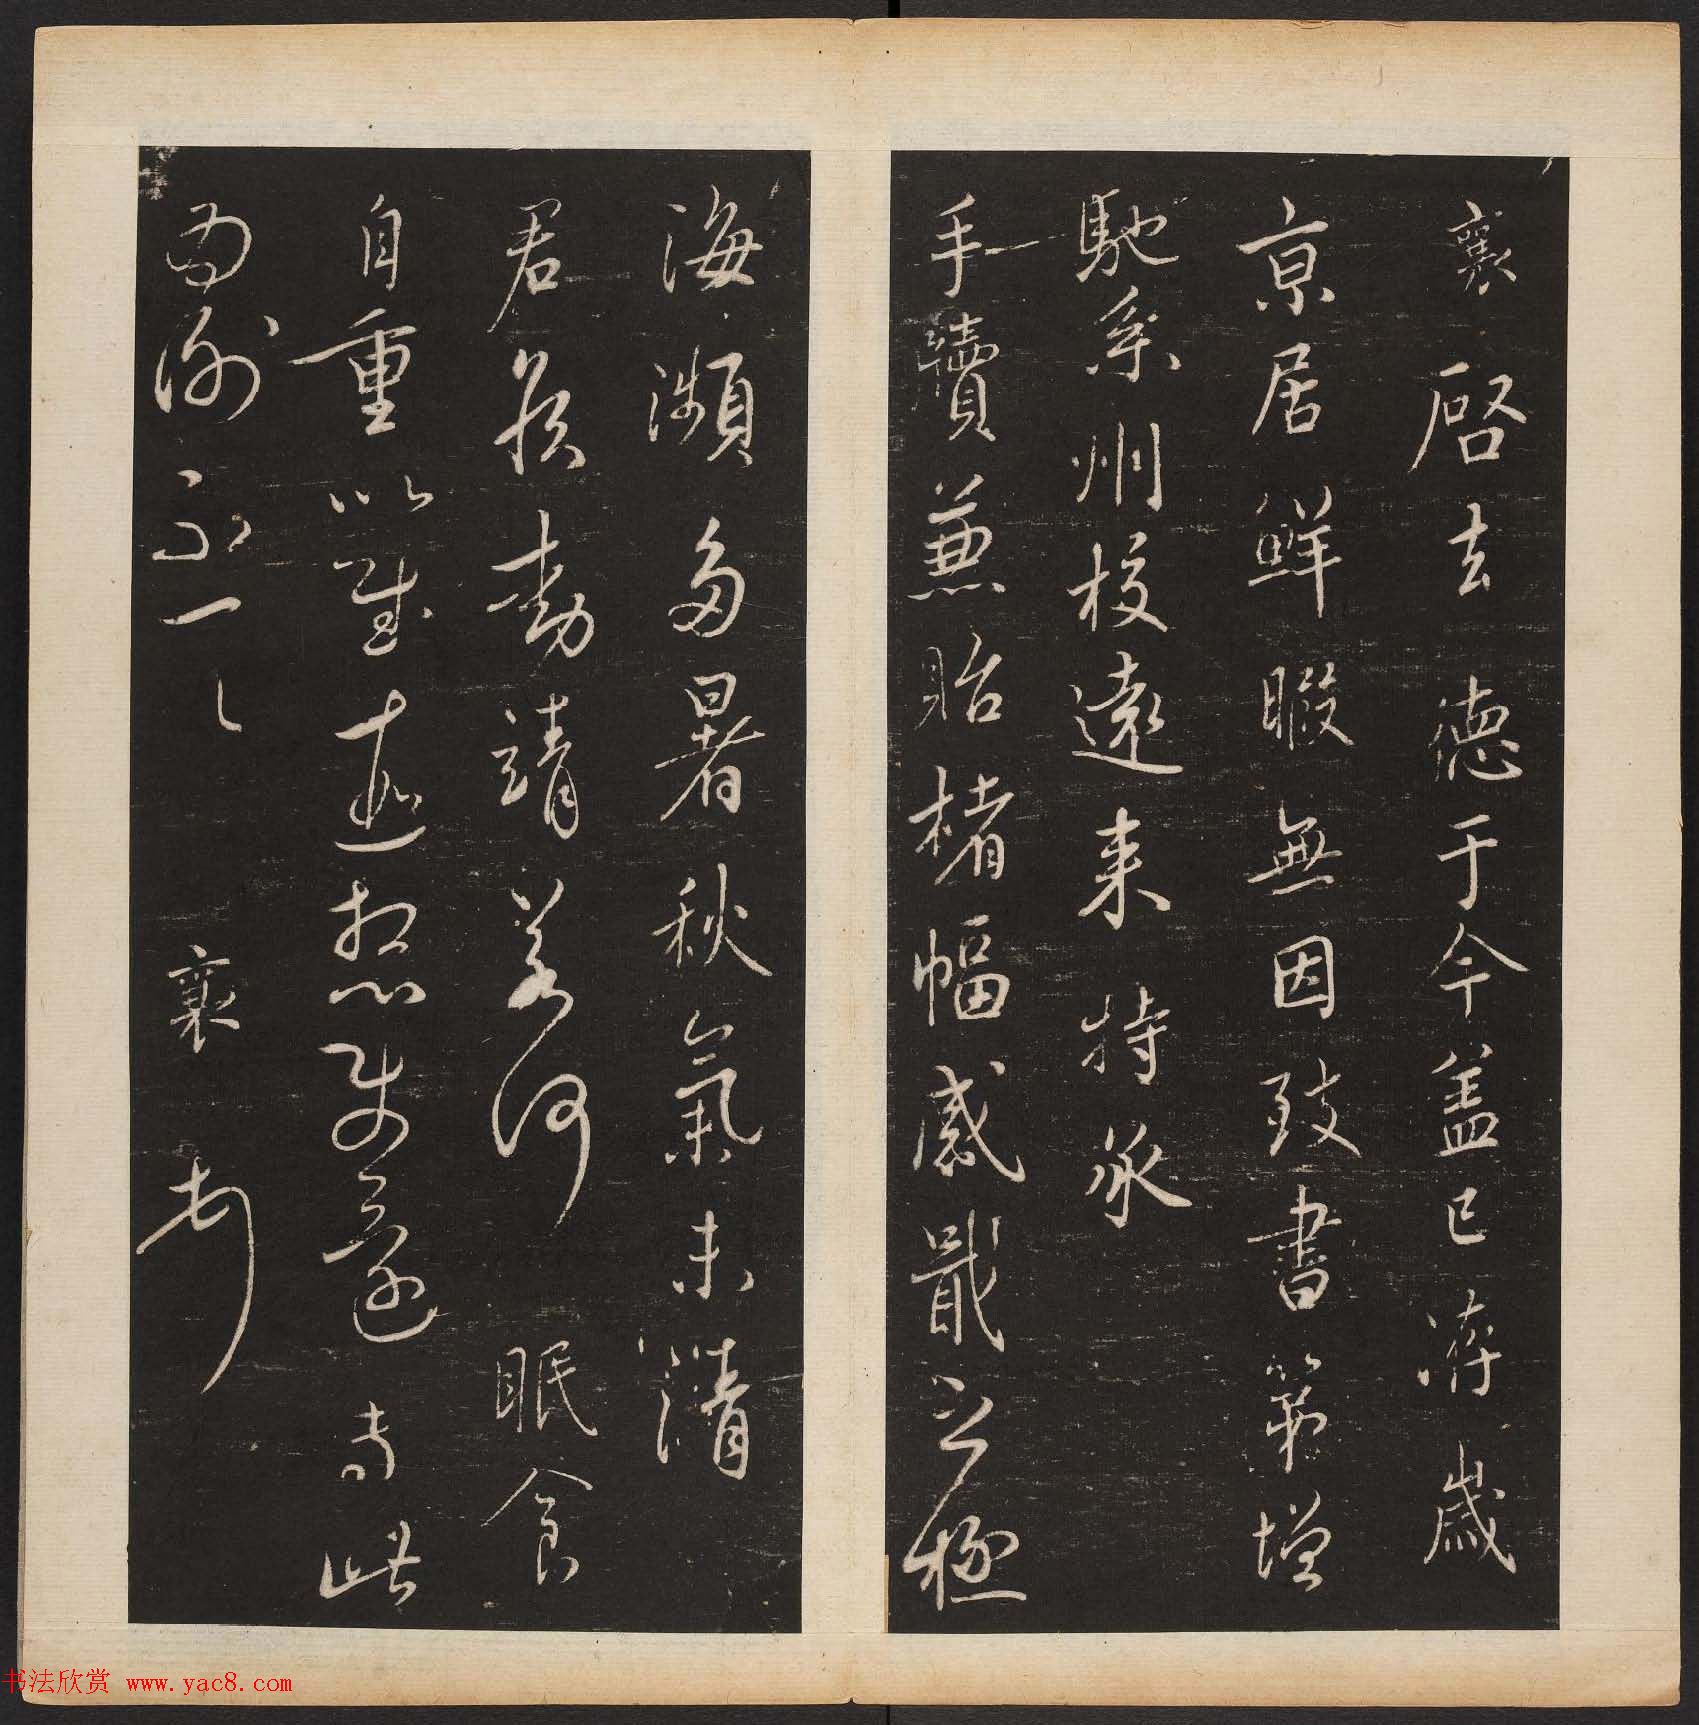 襄啓去德于今盖已㳽歲
京居鮮暇無因致書第增
馳系州校遠来特承
手牘兼貽楮幅感戢之極
海瀕多暑秋氣未清
君侯動靖若何眠食
自重以慰遐想還専此
為謝不一一襄
书法欣赏 www.yac8.com